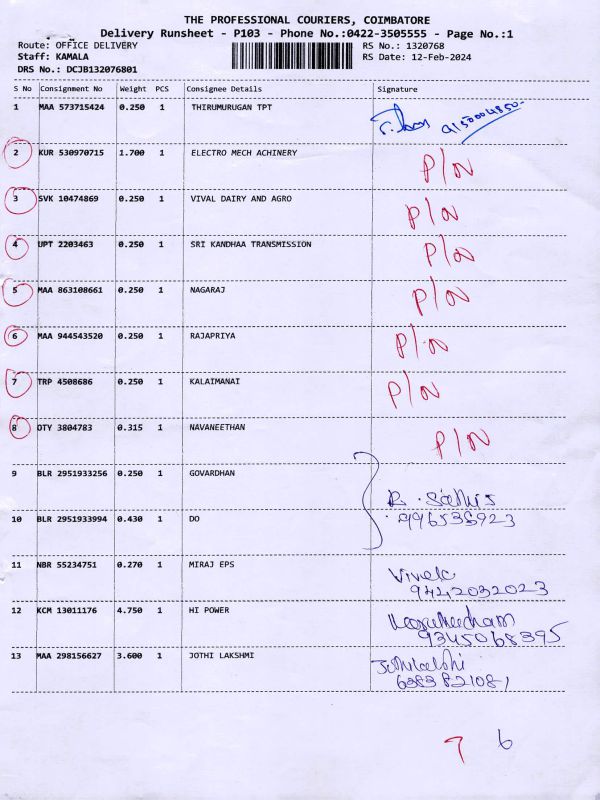 THE PROFESSIONAL COURIERS, COIMBATORE
Delivery Runsheet - P103 - Phone No.:0422-3505555 - Page No.:1
Route: OFFICE DELIVERY RS No.: 1320768
Staff: KAMALA RS Date: 12-Feb-2024
DRS No.: DCJB132076801
S No Consignment No Weight PCS Consignee Details Signature
1 MAA 573715424 0.250 1 THIRUMURUGAN TPT
2 KUR 530970715 1.700 1 ELECTRO MECH ACHINERY P/N
3 SVK 10474869 0.250 1 VIVAL DAIRY AND AGRO P/N
4 UPT 2203463 0.250 1 SRI KANDHAA TRANSMISSION P/N
5 MAA 863108661 0.250 1 NAGARAJ P/N
6 MAA 944543520 0.250 1 RAJAPRIYA P/N
7 TRP 4508686 0.250 1 KALAIMANAI P/N
8 OTY 3804783 0.315 1 NAVANEETHAN P/N
9 BLR 2951933256 0.250 1 GOVARDHAN
10 BLR 2951933994 0.430 1 DO
11 NBR 55234751 0.270 1 MIRAJ EPS
9442032023
12 KCM 13011176 4.750 1 HI POWER
9345068395
13 MAA 298156627 3.600 1 JOTHI LAKSHMI
6383821081
7 6